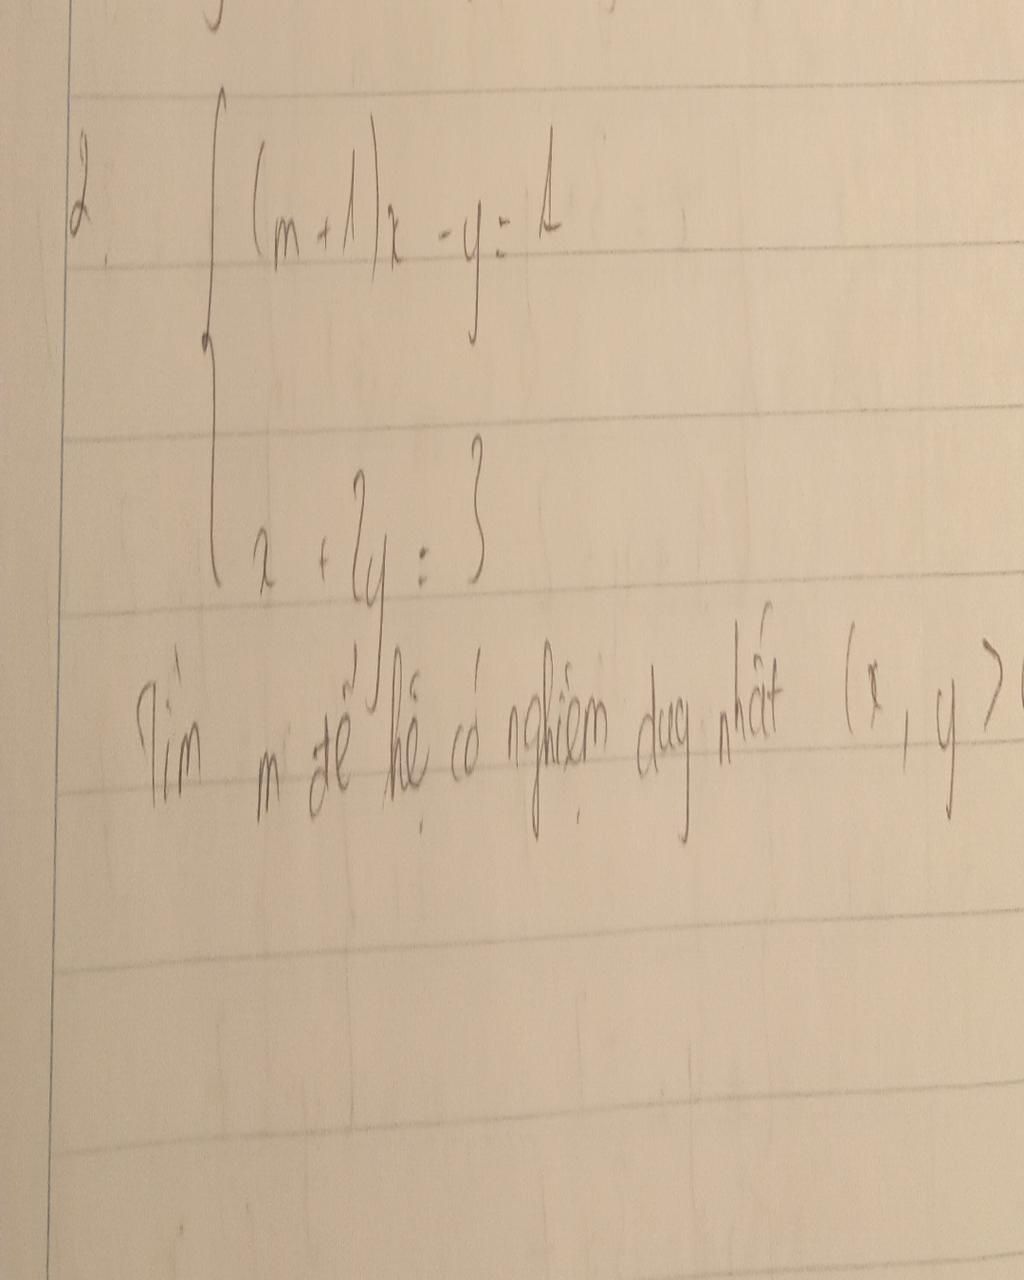 2. { (m+1)x - y = 1
x + 2y = 3
Tìm m để hệ có nghiệm duy nhất (x, y >